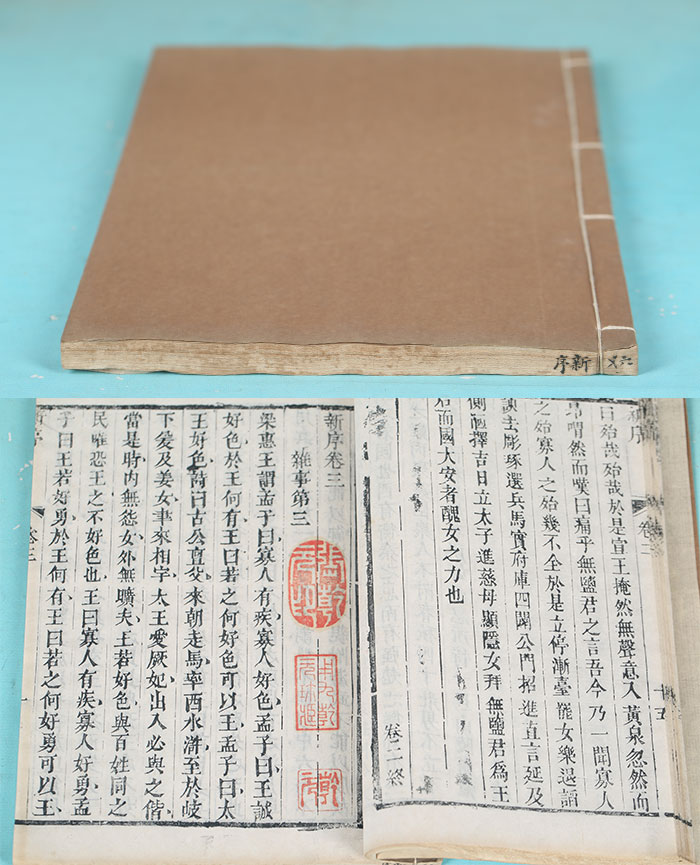 新序
新序
卷二
十五
曰殆哉殆哉於是宣王掩然無聲意入黃泉忽然而
昂喟然而嘆曰痛乎無鹽君之言吾今乃一聞寡人
之殆寡人之殆幾不全於是立停漸臺罷女樂退諂
諛去彫琢選兵馬實府庫四闢公門招進直言延及
側陋擇吉日立太子進慈母顯隱女拜無鹽君爲王
而國大安者醜女之力也
卷二終
新序卷三
雜事第三
梁惠王謂孟子曰寡人有疾寡人好色孟子曰王誠
好色於王何有王曰若之何好色可以王孟子曰太
王好色詩曰古公亶父來朝走馬率西水滸至於岐
下爰及姜女聿來相宇太王愛厥妃出入必與之偕
當是時內無怨女外無曠夫王若好色與百姓同之
民唯恐王之不好色也王曰寡人有疾寡人好勇孟
子曰王若好勇於王何有王曰若之何好勇可以王
卷三